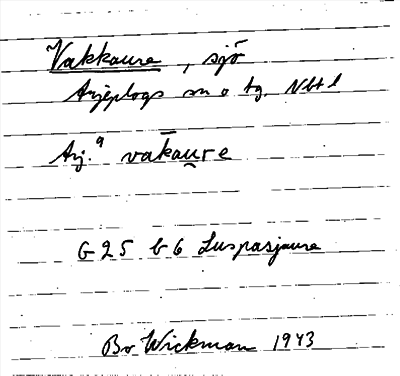 Vakkaure, sjö
Arjeplogs sn o tg. Nbtl
Arj.ᵃ vākau̯re
G 25 b 6 Luspasjaure
Bo Wickman 1943